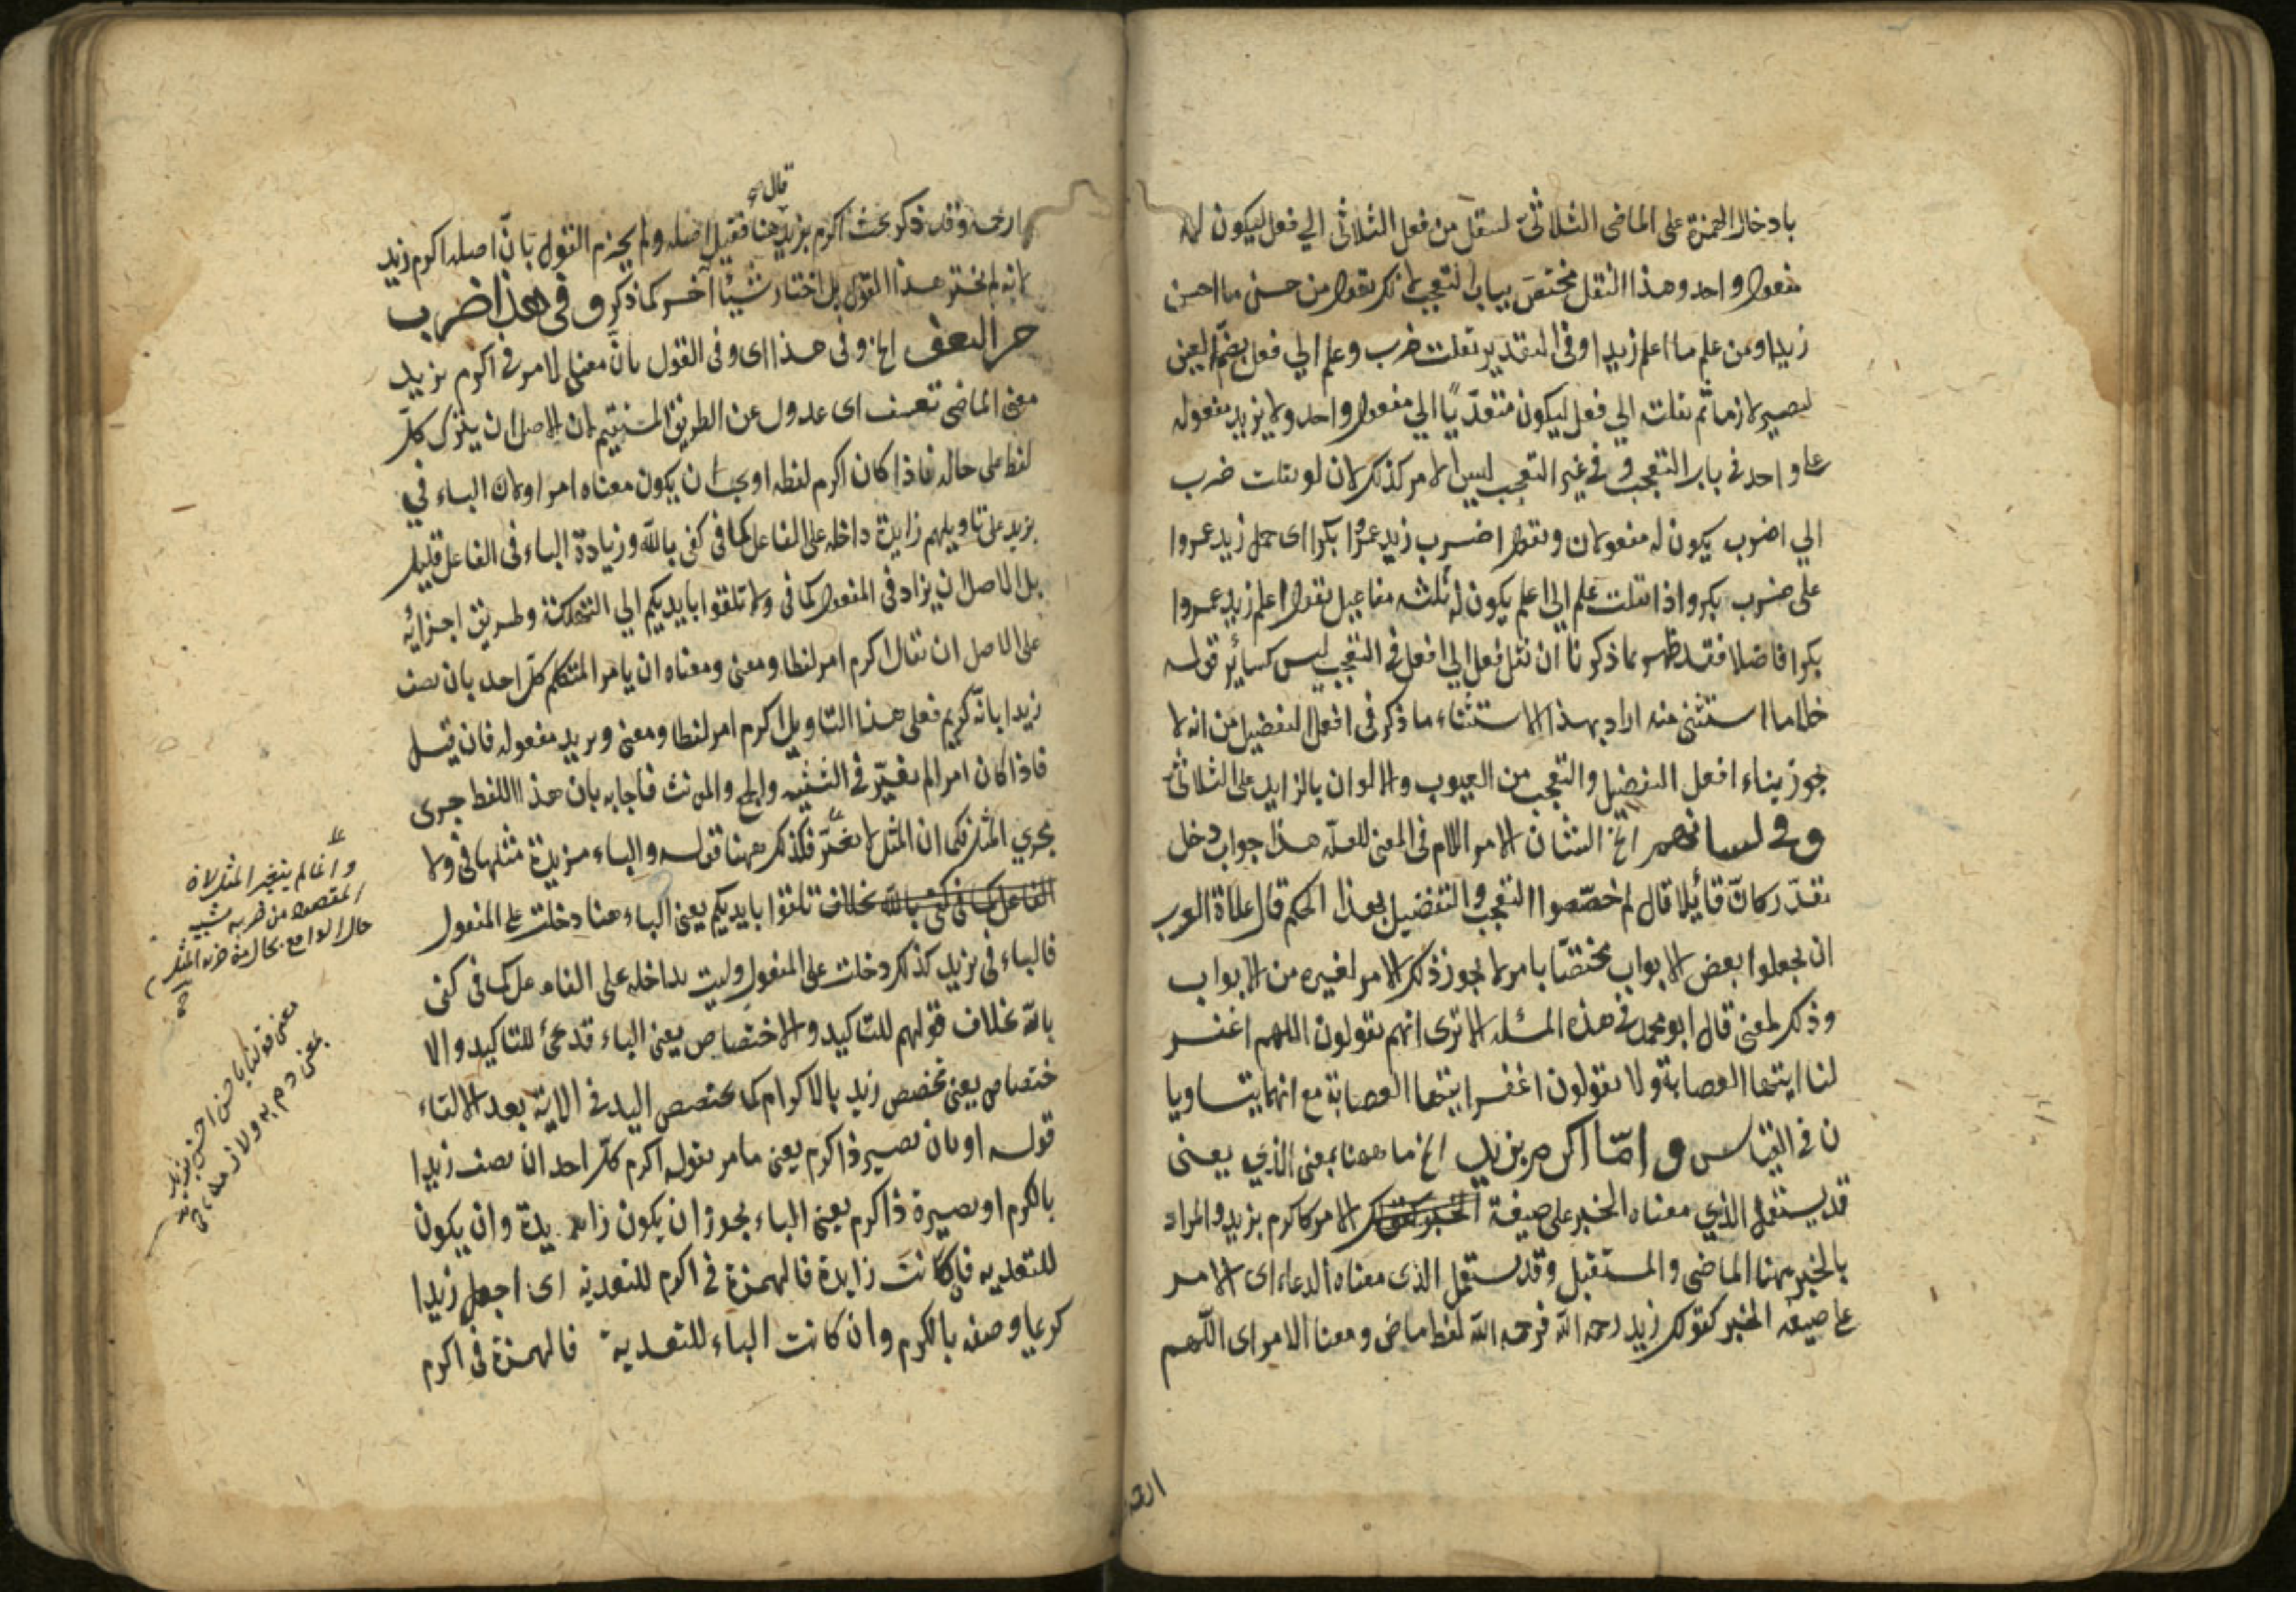 بادخال الهمزة على الماضى الثلاثى لينقل من فعل الثلاثى الي فعل ليكون له
مفعول واحد وهذا النقل مختصّ بباب التعجب لانك تقول من حسن ما احسن
زيدا ومن علم ما اعلم زيدا وفى التقدير نقلت ضرب وعلم الي فعل بضم العين
ليصير لازما ثم نقلته الي فعل ليكون متعدّيًا الي مفعول واحد ولا يزيد مفعوله
على واحد فى باب التعجب وفى غير التعجب ليس الامر كذلك لان لو نقلت ضرب
الي اضرب يكون له مفعولان وتقول اضرب زيد عمرًوا بكرا اى حمل زيد عمروا
على ضرب بكر واذا نقلت علم الي اعلم يكون له ثلثه مفاعيل تقول اعلم زيد عمروا
بكرا فاضلا فقد ظهر بما ذكرنا ان نقل فعل الي افعل فى التعجب ليس كسائر قوله
خلا ما استثنى منه اراد بهذا الاستثناء ما ذكر فى افعل التفضيل من انه لا
يجوز بناء افعل التفضيل والتعجب من العيوب والالوان بالزايد على الثلاثى
وفى لسانهم الخ الشان الامر اللام فى المعنى للعلّة هذا جواب دخل
تقدّر كانّ قائلا قال لم خصّصوا التعجب والتفضيل بهذا الحكم قال علماة العرب
ان يجعلوا بعض الابواب مختصّا بامر لا يجوز ذلك الامر لغيره من الابواب
وذلك لمعنى قال ابو محمد فى هذه المسئله الا ترى انهم يقولون اللهم اغفر
لنا ايتها العصابة ولا يقولون اغفر ايتها العصابة مع انهما يتساويا
ن فى القياس واما اكرم بزيد الخ ما ههنا بمعنى الذي يعنى
قد يستعمل الذي معناه الخبر على صيغة الخبر كقولك الامر كاكرم بزيد والمراد
بالخبر ههنا الماضى والمستقبل وقد يستعمل الذى معناه الدعاء اى الامر
على صيغة الخبر كقولك زيد رحمه الله فرحمه الله لفظ ماض ومعنا الامر اى اللّهم
ارحمه
ارحمه وقد ذكر بحث اكرم بزيد هنا فقيل اصله ولم يجزم القول بانّ اصله اكرم زيد
قال
لانه لم يختر هذا القول بل اختار شيئا آخر كما ذكر وفى هذا ضرب
من التعسف الخ وفى هذا اى وفى القول بانّ معنى الامر فى اكرم بزيد
معنى الماضى تعسف اى عدول عن الطريق المستقيم لان الاصل ان يترك كلّ
لفظ على حاله فاذا كان اكرم لفظه اوجب ان يكون معناه امرا ولان الباء في
بزيد على تاويلهم زايدة داخله على الفاعل كما فى كفى بالله وزيادة الباء فى الفاعل قليل
بل الاصل ان يزاد فى المفعول كما فى ولا تلقوا بايديكم الي التهلكة وطريق اجرائه
على الاصل ان تقال اكرم امر لفظا ومعنى ومعناه ان يامر المتكلم كلّ احد بان يصف
زيدا بانّه كريم فعلى هذا التاويل اكرم امر لفظا ومعنى وبزيد مفعوله فان قيل
فاذا كان امرا لم يغيّر فى التثنيه والجمع والمونث فاجابه بان هذا اللفظ جرى
مجري المثل فكما ان المثل لا يتغيّر فكذلك ههنا قوله والباء مزيدة مثلها فى ولا
الفاعل كما فى كفى بالله بخلاف تلقوا بايديكم يعنى الباء هنا دخلت على المفعول
فالباء فى بزيد كذلك دخلت على المفعول وليت بداخله على الفاعل كما فى كفى
بالله بخلاف قولهم للتاكيد والاختصاص يعنى الباء قد يجئ للتاكيد والا
ختصاص يعنى تخصص زيد بالاكرام كما يختصص اليد فى الاية بعد الالقاء
قوله او بان تصير ذا كرم يعنى ما مر بقوله اكرم كلّ احد ان يصف زيدا
بالكرم او بصيرة ذا كرم يعنى الباء يجوز ان يكون زايدة وان يكون
للتعديه فان كانت زايدة فالهمزة فى اكرم للتعدية اى اجعل زيدا
كريما وصفه بالكرم وان كانت الباء للتعدية فالهمزة فى اكرم
وانما لم يتغير المثل لان
المقصود من ضربه تشبيه
حال المثل
معنى قولنا يا حسن احسن بزيد